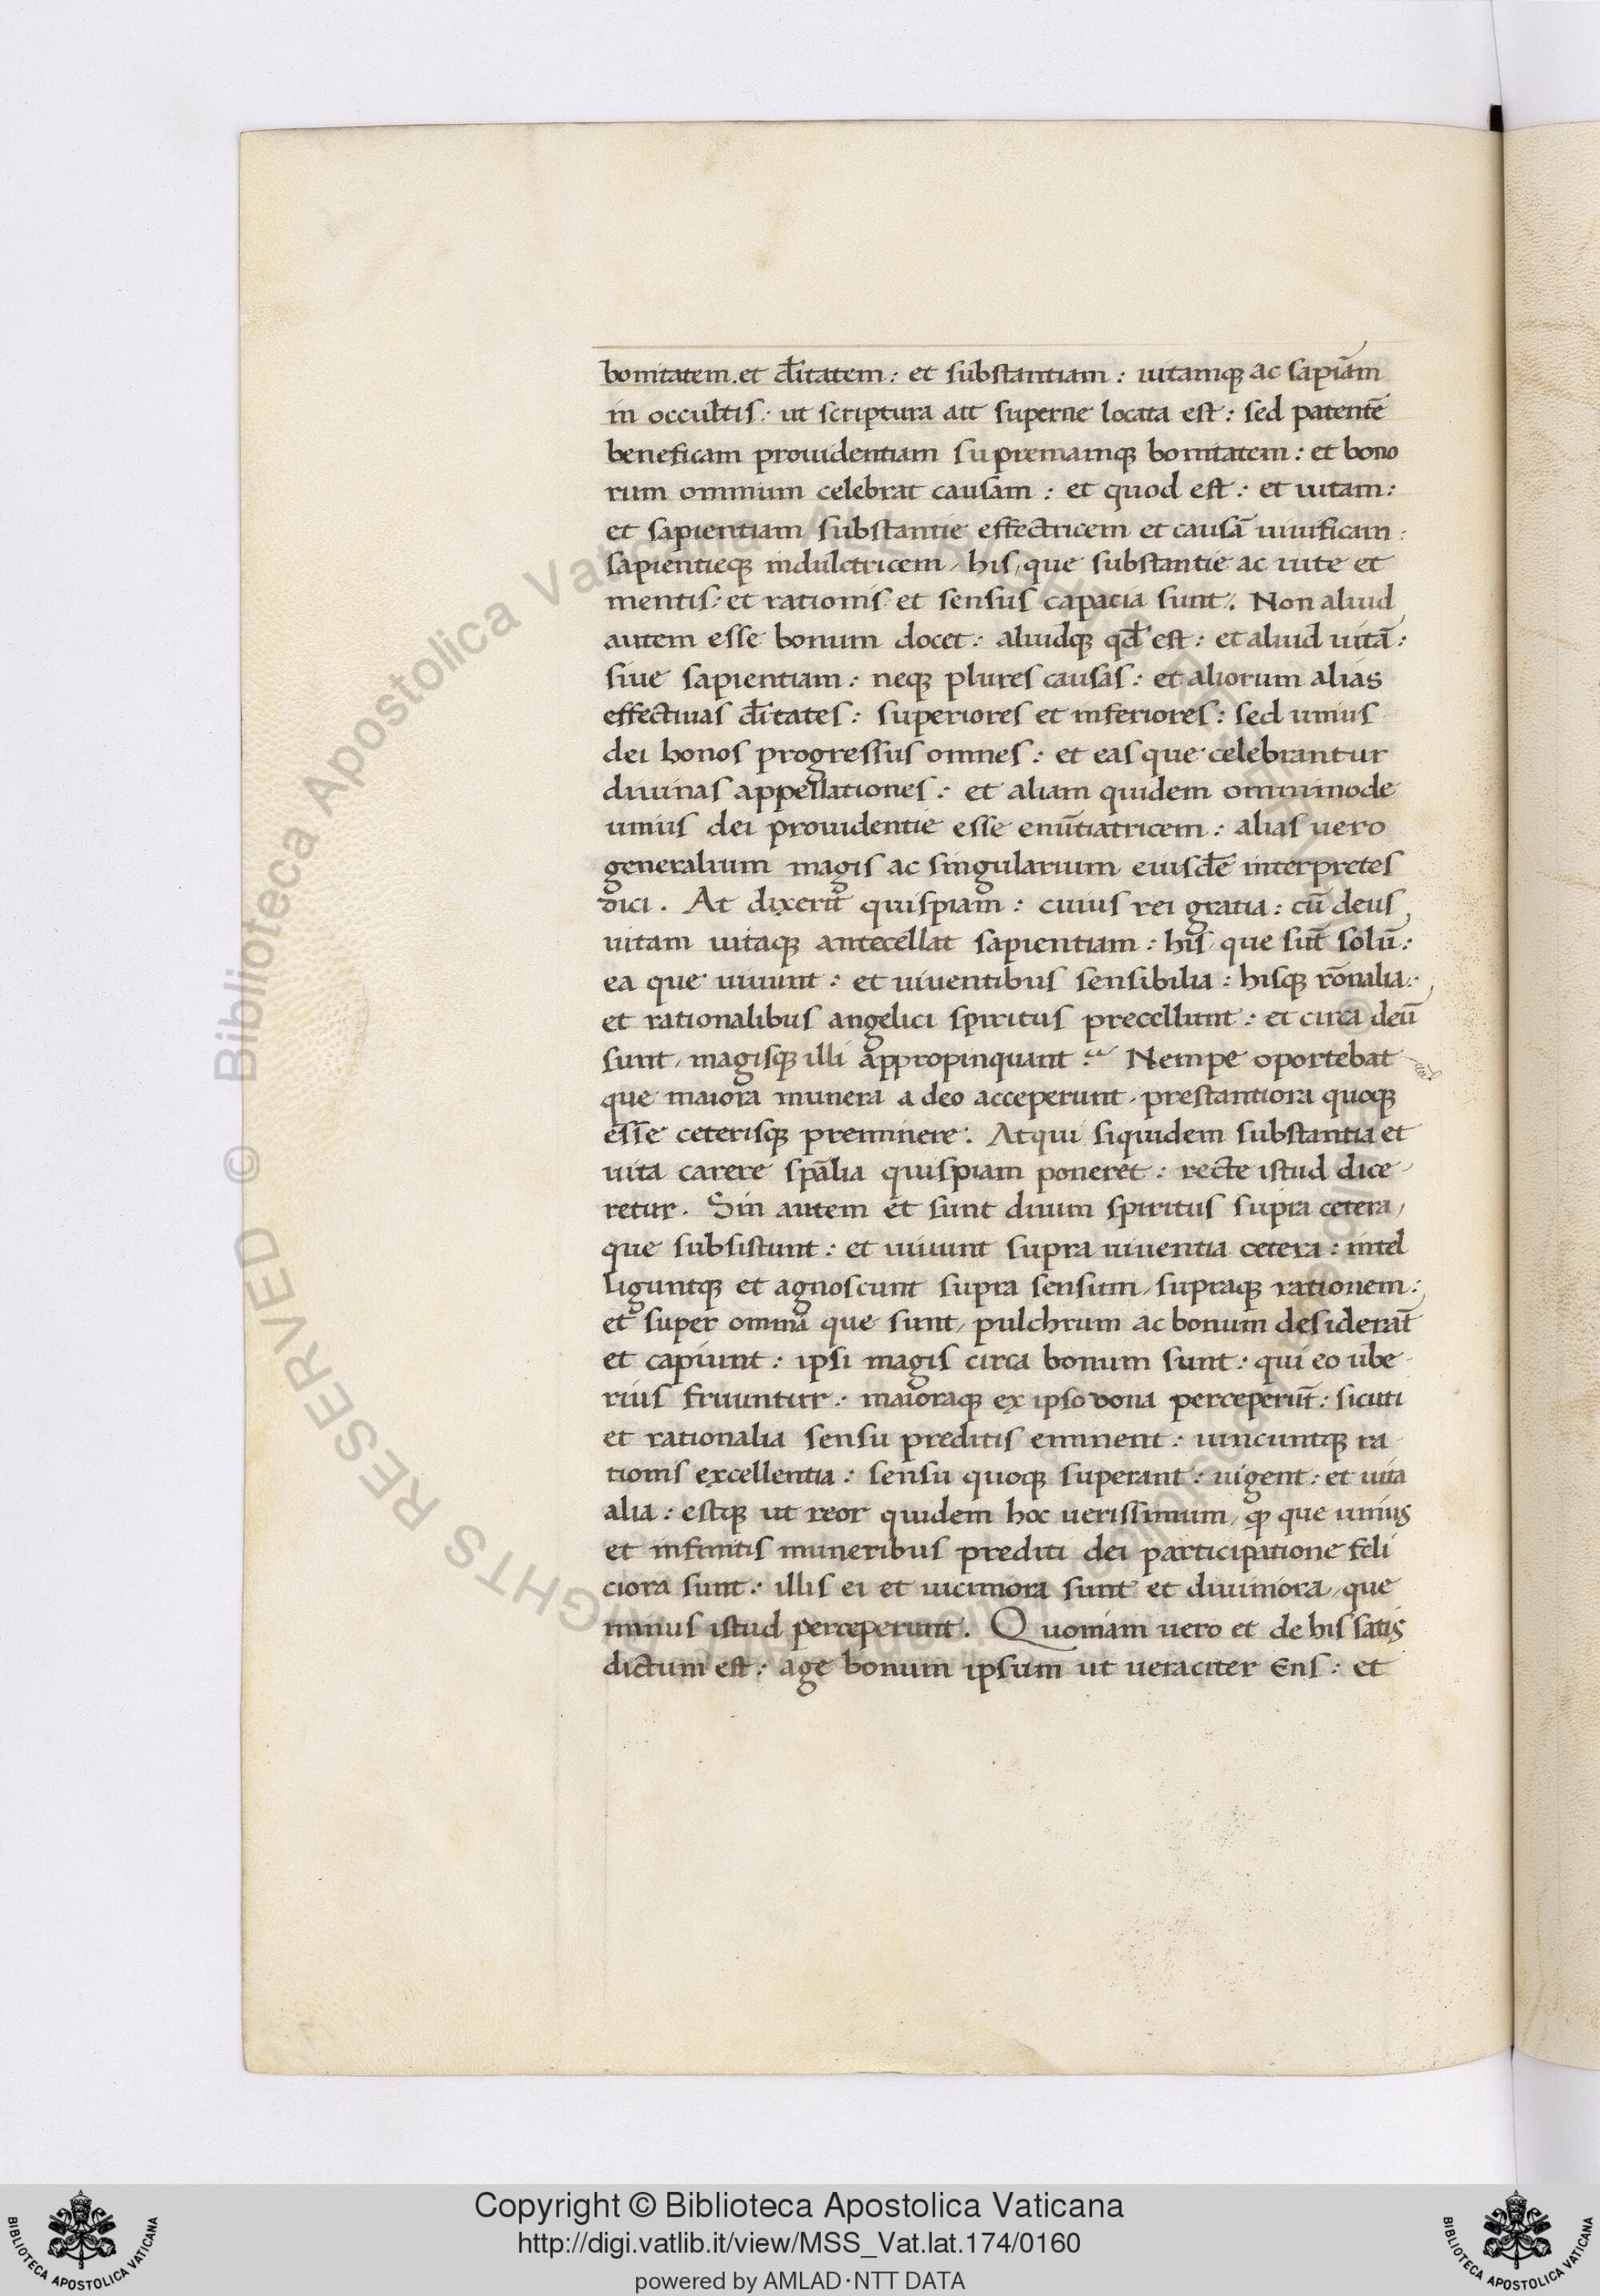 bonitatem. et dītatem : et substantiam : uitamqꝫ ac sapiām
in occultis : ut scriptura ait superne locata est : sed patentē
beneficam prouidentiam supremamqꝫ bonitatem : et bono
rum omnium celebrat causam : et quod est : et uitam :
et sapientiam substantie effectricem et causā uiuificam :
sapientieqꝫ indultricem, his, que substantie ac uite et
mentis et rationis et sensus capacia sunt. Non aliud
autem esse bonum docet : aliudqꝫ qđ est : et aliud uitā :
siue sapientiam : neqꝫ plures causas : et aliorum alias
effectiuas dītates : superiores et inferiores : sed unius
dei bonos progressus omnes : et eas que celebrantur
diuinas appellationes : et aliam quidem omnimode
unius dei prouidentie esse enūtiatricem : alias uero
generalium magis ac singularium eiusdē interpretes
dici. At dixerit quispiam : cuius rei gratia : cū deus
uitam uitaqꝫ antecellat sapientiam : his que sūt solū :
ea que uiuunt : et uiuentibus sensibilia : hisqꝫ rōnalia :
et rationalibus angelici spiritus precellunt : et circa deū
sunt, magisqꝫ illi appropinquant : Nempe oportebat
que maiora munera a deo acceperunt, prestantiora quoqꝫ
esse ceterisqꝫ preminere. Atqui siquidem substantia et
uita carere spālia quispiam poneret : recte istud dice
retur. Sin autem et sunt diuini spiritus supra cetera,
que subsistunt : et uiuunt supra uiuentia cetera : intel
liguntqꝫ et agnoscunt supra sensum, supraqꝫ rationem :
et super omnia que sunt, pulchrum ac bonum desiderāt
et capiunt : ipsi magis circa bonum sunt : qui eo ube
rius fruuntur : maioraqꝫ ex ipso dona perceperūt : sicuti
et rationalia sensu preditis eminent : uincuntqꝫ ra
tionis excellentia : sensu quoqꝫ superant : uigent : et uita
alia : estqꝫ ut reor quidem hoc uerissimum, qꝫ que unius
et infinitis muneribus prediti dei participatione feli
ciora sunt : illis ei et uiciniora sunt et diuiniora, que
minus istud perceperunt. Quoniam uero et de his satis
dictum est : age bonum ipsum ut ueraciter Ens : et
© Biblioteca Apostolica Vaticana ALL RIGHTS RESERVED
Copyright © Biblioteca Apostolica Vaticana
http://digi.vatlib.it/view/MSS_Vat.lat.174/0160
powered by AMLAD·NTT DATA
BIBLIOTECA APOSTOLICA VATICANA
BIBLIOTECA APOSTOLICA VATICANA